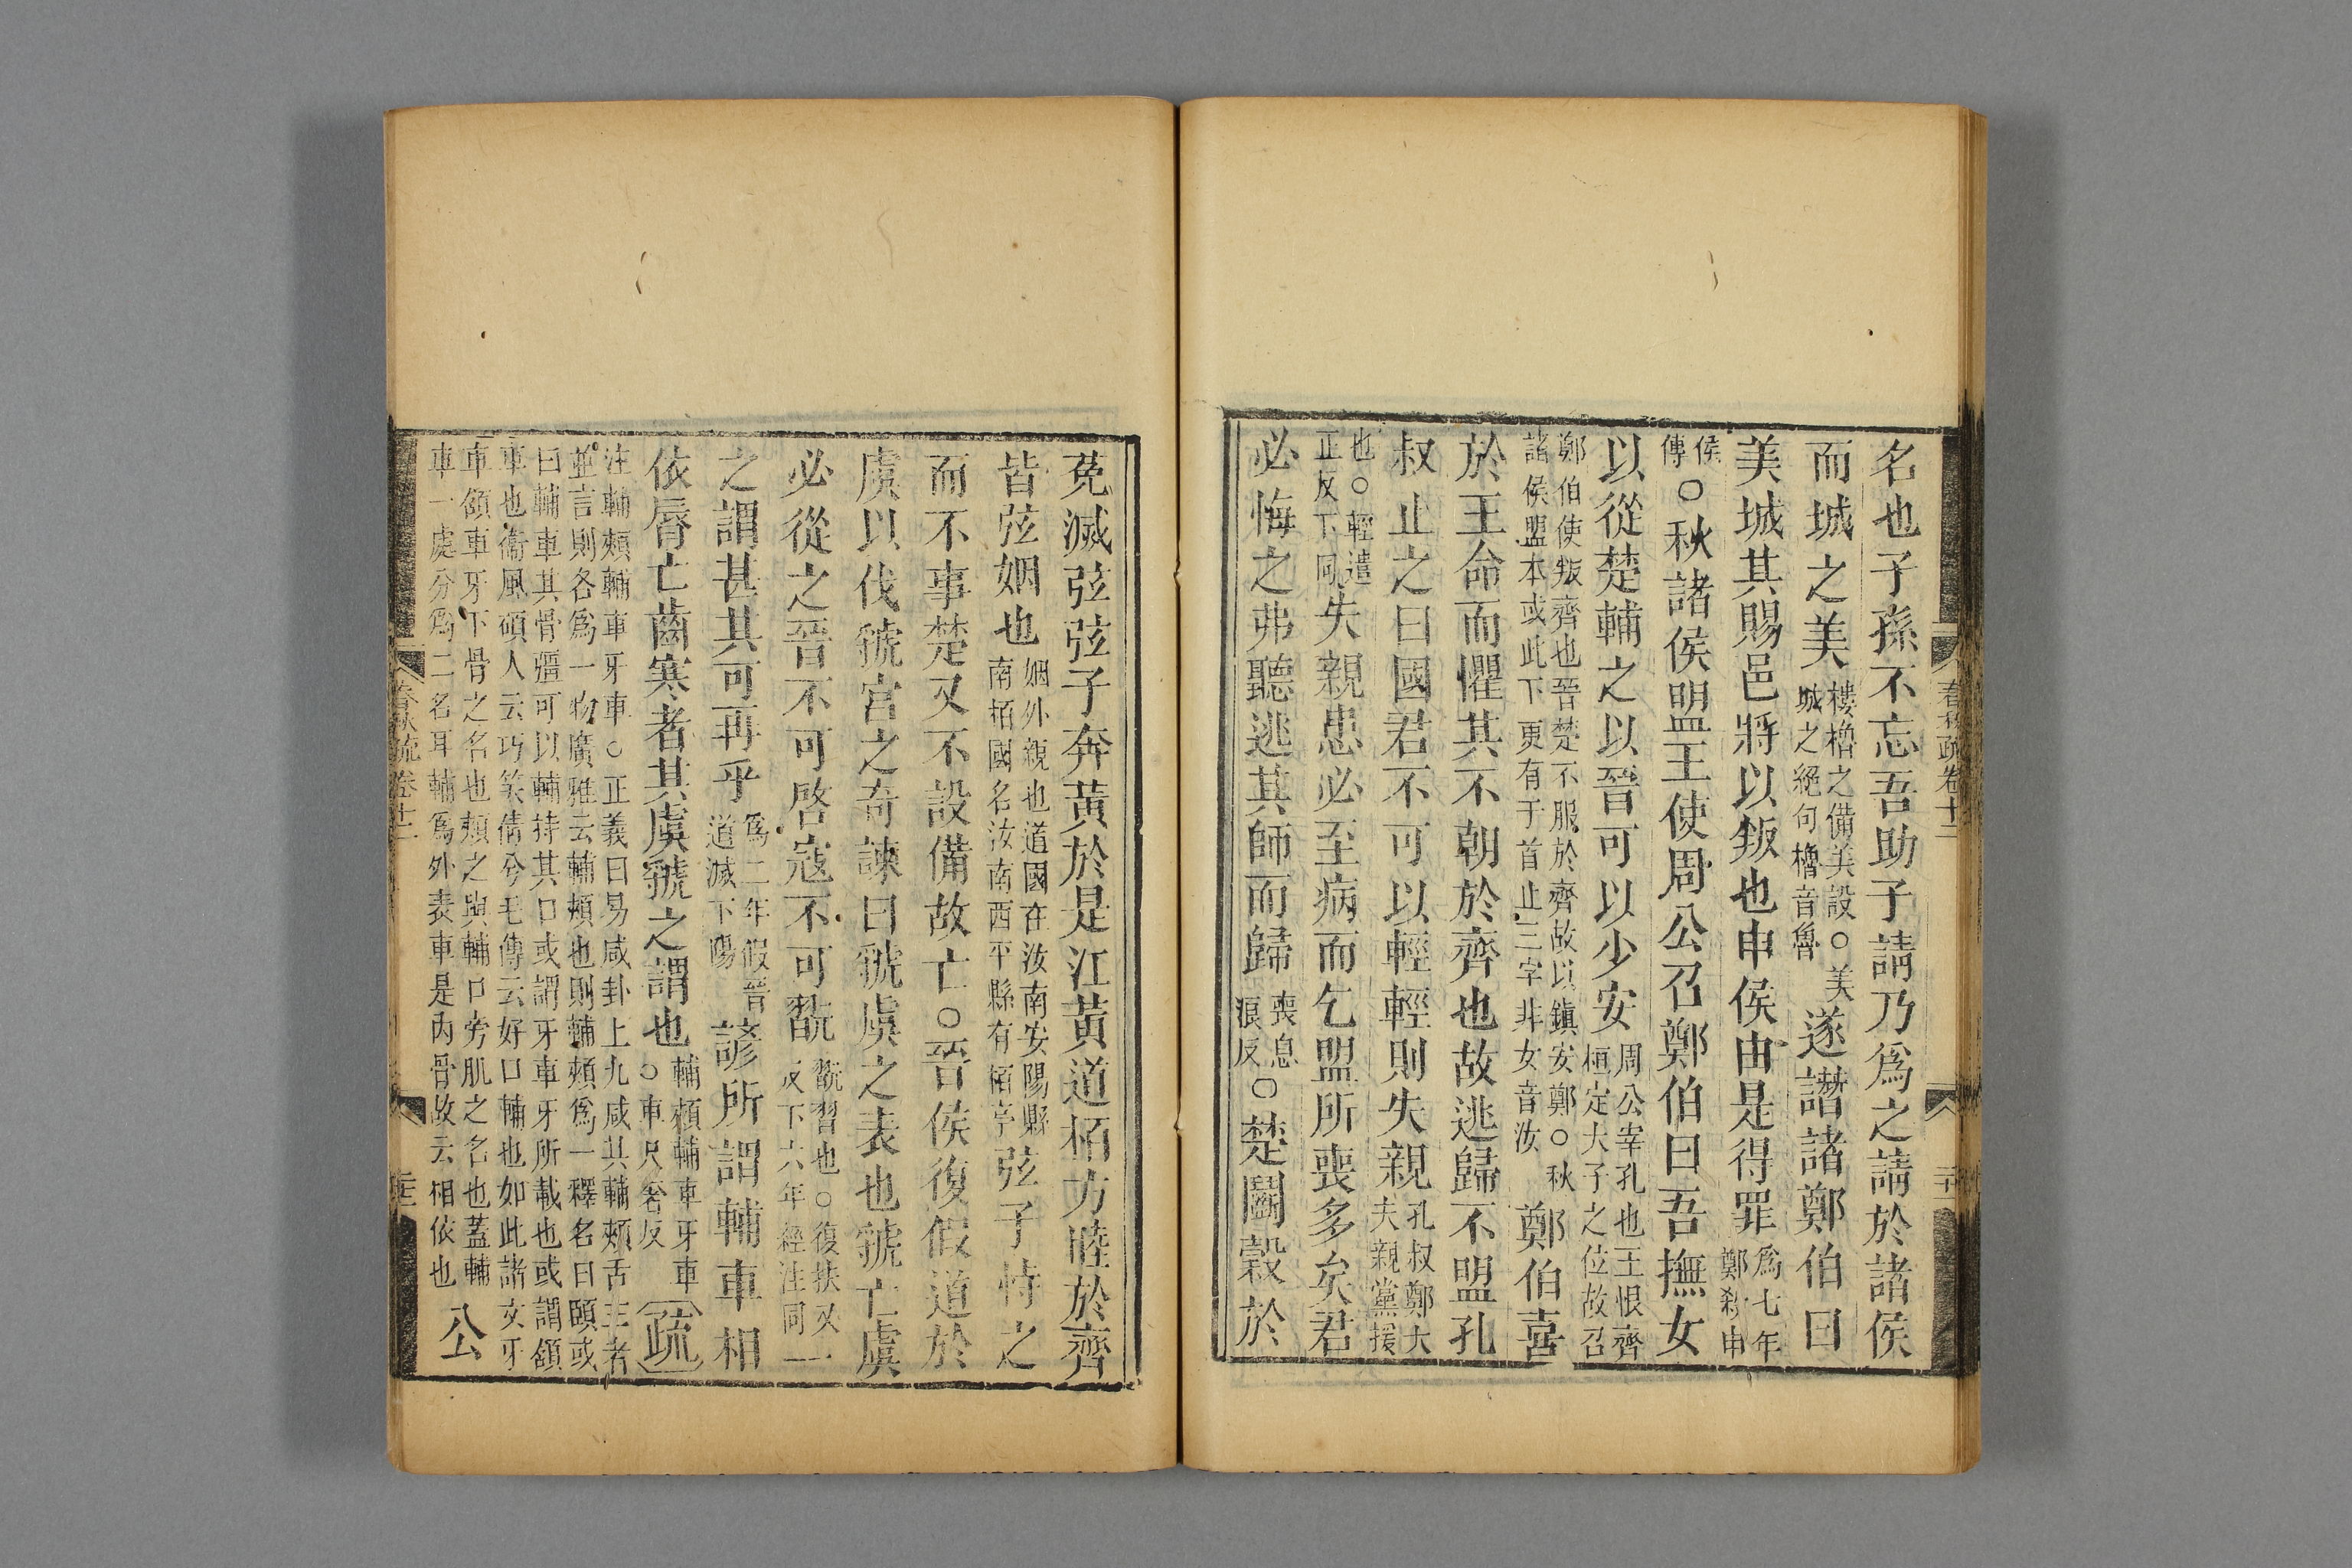 名也子孫不忘吾助子請乃爲之請於諸侯
而城之美樓櫓之備美設○美城之絕句櫓音魯遂譖諸鄭伯曰
美城其賜邑將以叛也申侯由是得罪爲七年鄭殺申
侯傳○秋諸侯盟王使周公召鄭伯曰吾撫女
以從楚輔之以晉可以少安周公宰孔也王恨齊桓定大子之位故召
鄭伯使叛齊也晉楚不服於齊故以鎭安鄭○秋諸侯盟本或此下更有于首止三字非女音汝鄭伯喜
於王命而懼其不朝於齊也故逃歸不盟孔
叔止之曰國君不可以輕輕則失親孔叔鄭大夫親黨援
也○輕遣正反下同失親患必至病而乞盟所喪多矣君
必悔之弗聽逃其師而歸喪息浪反○楚鬬穀於
菟滅弦弦子奔黃於是江黃道栢方睦於齊
皆弦姻也姻外親也道國在汝南安陽縣南栢國名汝南西平縣有栢亭弦子恃之
而不事楚又不設備故亡○晉侯復假道於
虞以伐虢宮之奇諫曰虢虞之表也虢亡虞
必從之晉不可啓寇不可翫翫習也○復扶又反下六年經注同一
之謂甚其可再乎爲二年假晉道滅下陽諺所謂輔車相
依脣亡齒寒者其虞虢之謂也輔頰輔車牙車○車尺奢反疏
注輔頰輔車牙車○正義曰易咸卦上九咸其輔頰舌三者
並言則各爲一物廣雅云輔頰也則輔頰爲一釋名曰頤或
曰輔車其骨彊可以輔持其口或謂牙車牙所載也或謂頷
車也衞風碩人云巧笑倩兮毛傳云好口輔也如此諸文牙
車頷車牙下骨之名也頰之與輔口旁肌之名也蓋輔
車一處分爲二名耳輔爲外表車是內骨故云相依也公
春秋疏卷十二